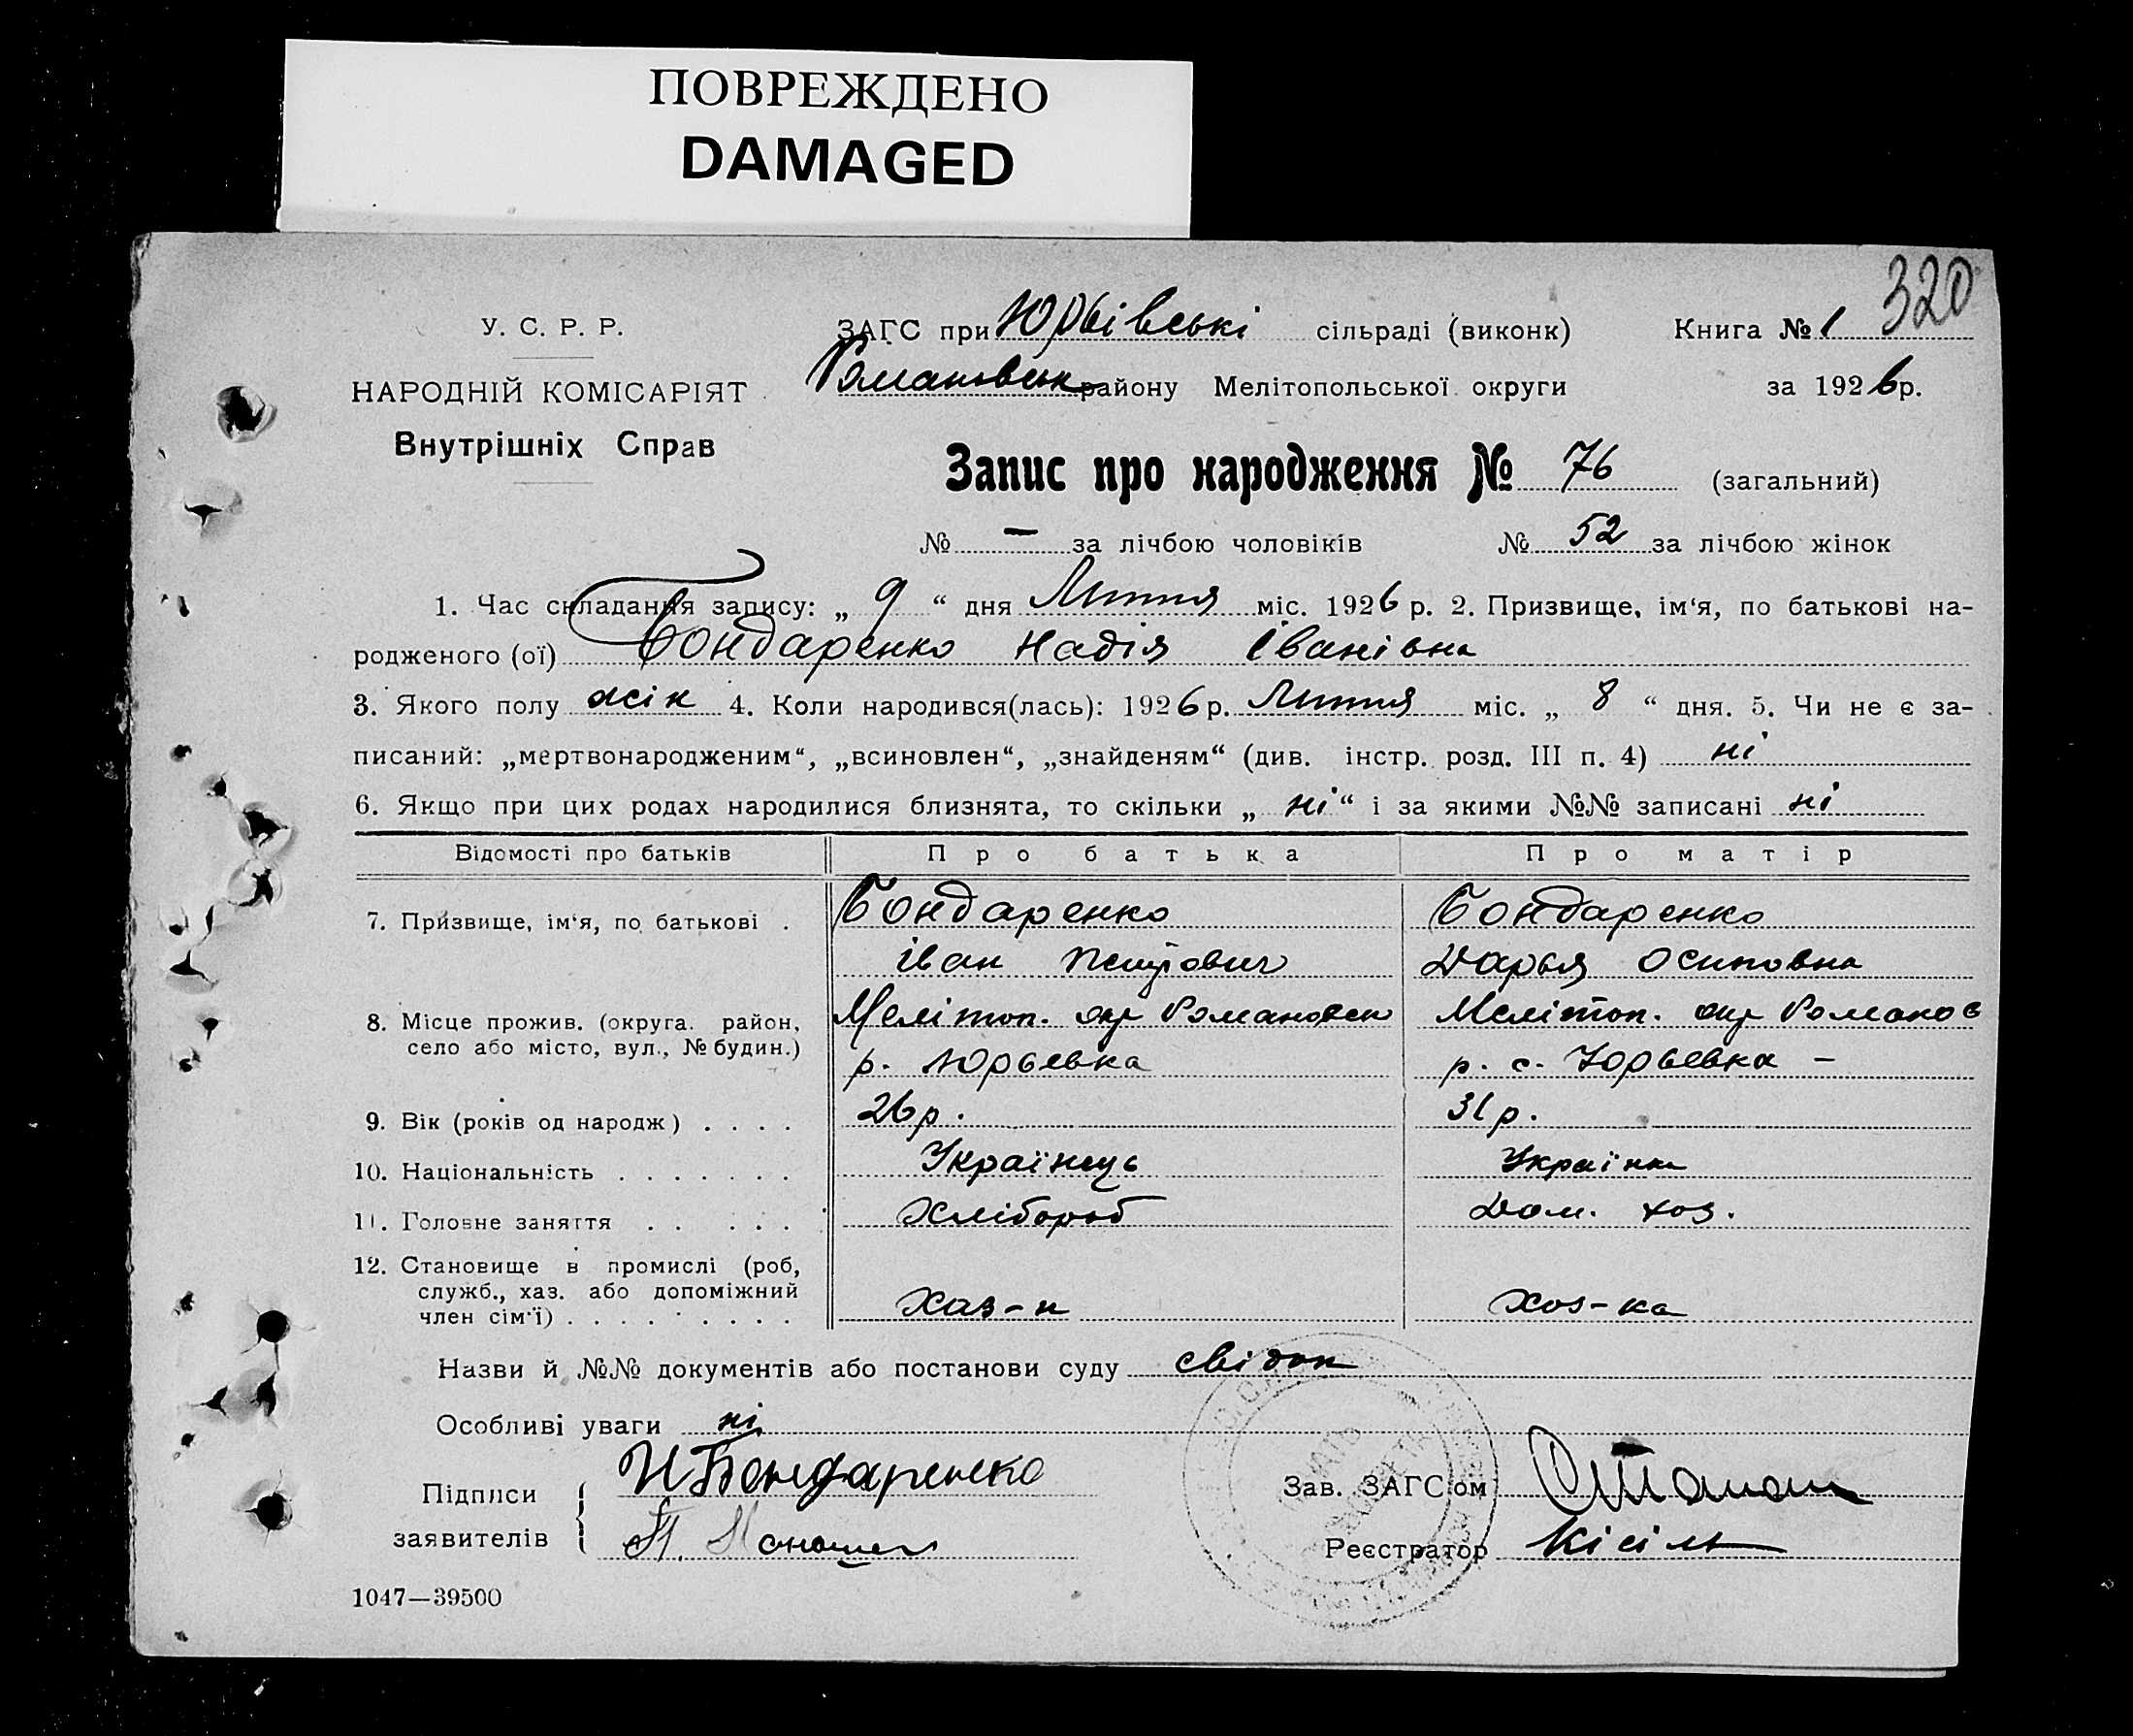 ПОВРЕЖДЕНО
DAMAGED
320
У. С. Р. Р.
НАРОДНІЙ КОМІСАРІЯТ
Внутрішніх Справ
ЗАГС при Юрьівські сільраді (виконк) Книга № 1
Романовськ району Мелітопольської округи за 1926 р.
Запис про народження № 76 (загальний)
№ — за лічбою чоловіків № 52 за лічбою жінок
1. Час складання запису: „ 9 “ дня Липня міс. 1926 р. 2. Призвище, ім‘я, по батькові на-
родженого (ої) Бондаренко Надія Іванівна
3. Якого полу жін 4. Коли народився(лась): 1926 р. Липня міс. „ 8 “ дня. 5. Чи не є за-
писаний: „мертвонародженим“, „всиновлен“, „знайденям“ (див. інстр. розд. III п. 4) ні
6. Якщо при цих родах народилися близнята, то скільки „ ні “ і за якими №№ записані ні
Відомості про батьків Про батька Про матір
7. Призвище, ім‘я, по батькові . Бондаренко Бондаренко
Іван Петрович Дарья Осиповна
8. Місце прожив. (округа. район, село або місто, вул., № будин.) Мелітоп. окр Романовськ Мелітоп. окр Романов
р. Юрьевка р. с. Юрьевка —
9. Вік (років од народж) . . . . 26 р. 31 р.
10. Національність . . . . . . . Українець Українка
11. Головне заняття . . . . . . Хлібороб Дом. хоз.
12. Становище в промислі (роб, служб., хаз. або допоміжний член сім‘ї) . . . . . . . . . Хаз-н Хоз-ка
Назви й №№ документів або постанови суду свідок
Особливі уваги ні
Підписи заявителів
И Бондаренко
П.
Зав. ЗАГС‘ом
Реєстратор Кісіль
1047—39500